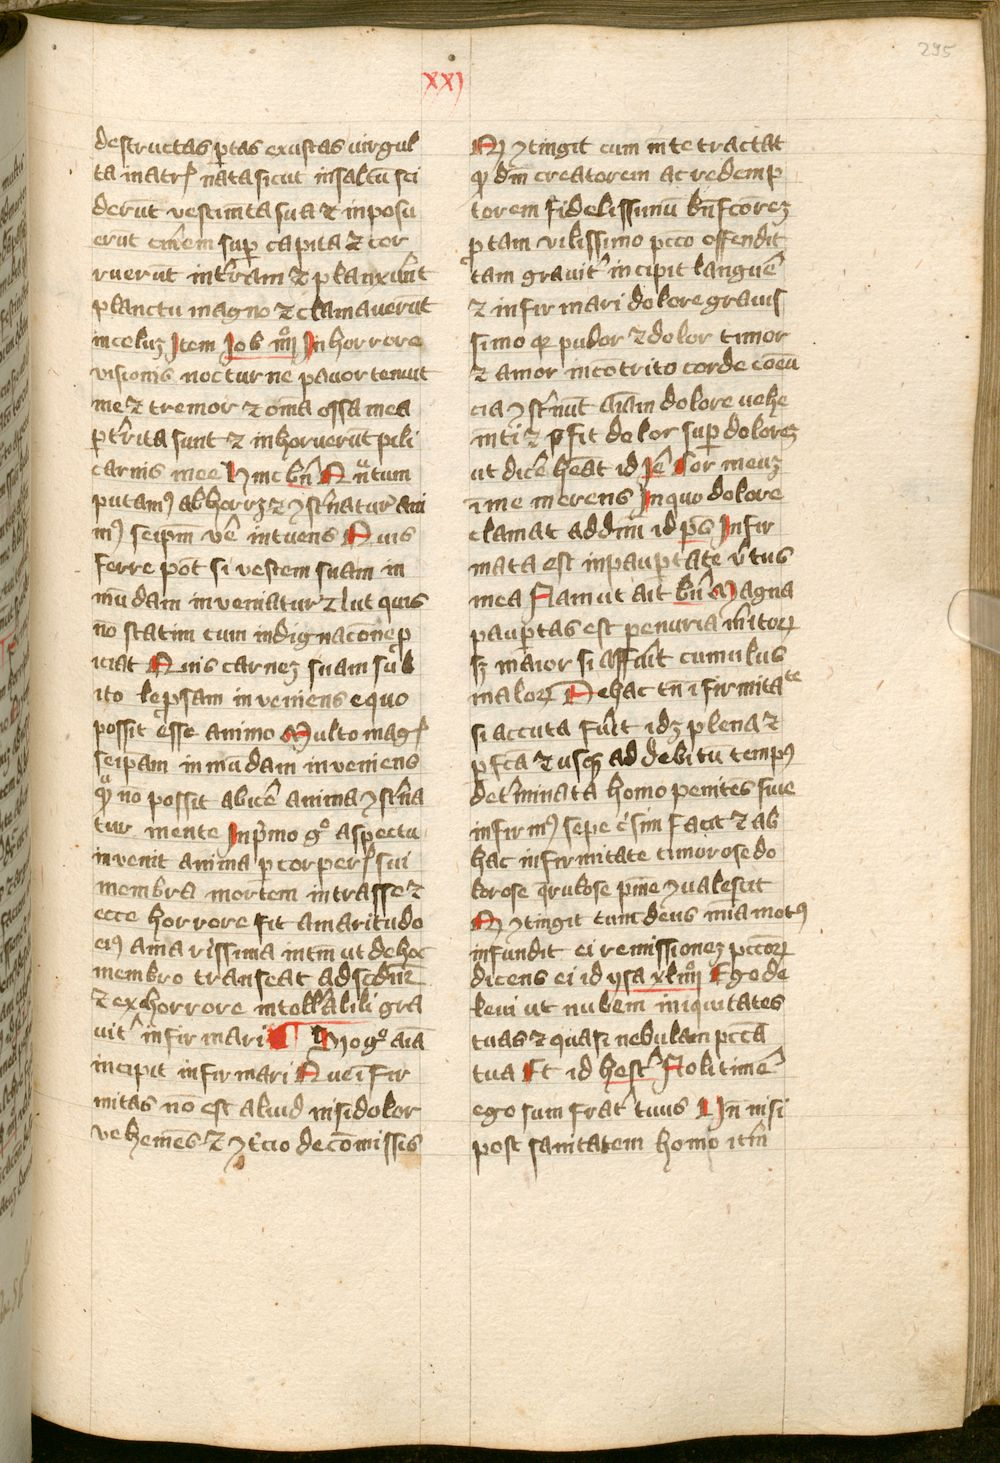 295
xxj
destructas ꝑtas exustas virgul
ta in atrꝭ nata sicut in saltu sci
derūt vestimīta sua ⁊ inposu
erūt cin̄em suꝑ capita ⁊ cor
ruerūt in t̄ram ⁊ planxer̄ut
planctu magno ⁊ clamauerūt
in celuꝫ Item Job iiij In horrore
visionis nocturne pauor tenuit
me ⁊ tremor ⁊ om̄a ossa mea
ꝑt̄rita sunt ⁊ inhoruerūt pili
carnis mee Hinc bn̄ Quātum
putamꝰ abhorrꝫ ⁊ ꝯst̄natur ani
mꝰ seipm̄ vē intuens Quis
ferre pōt si vestem suam in
mūdam inveniat ⁊ vlut quis
nō statim cum indignacōne ꝓ
iciat Quis carneꝫ suam sub
ito lepsam inveniens equo
possit esse animo Multo magꝭ
seipam inmūdam inveniens
quā nō possit abicē anima ꝯst̄na
tur mente In pͥmo gͦ aspectu
invenit anima ꝑ corꝑerꝭ sui
membra mortem intrasse ⁊
ecce horrore fit amaritudo
eiꝰ amarissima intm̄ ut de hoc
membro transeat ad scdm̄
⁊ ex horrore intoll̄abili gra
uit̄ infirmari ¶ Mo gͦ aīa
incipit infirmari Que īfir
mitas nō est aliud nisi dolor
vehemēs ⁊ ꝯt̄cio de cōmissis
Qͥ ꝯtingit cum in te tractat
ꝙ dm̄ creatorem ac redemp
torem fidelissimū bn̄fcōreꝫ
ꝓ tam vilissimo pccō offendit
tam grauit̄ incipit languē
⁊ infirmari dolore grauis
simo qꝫ pudor ⁊ dolor timor
⁊ amor in cōtrito corde cōcu
cia ꝯst̄nūt aīam dolore vehe
mn̄ti ⁊ ꝓfit dolor suꝑ doloreꝫ
ut dicē heāt id Jē Cor meuꝫ
ī me merens In quo dolore
clamat ad dm̄ id pš Infir
mata est in pauꝑtate v̄tus
mea Nam ut ait bn̄ Magna
pauꝑtas est penuria m̄itoꝝ
sꝫ maior si affūit cumulus
maloꝝ De hac tn̄ īfirmitate
si accuta fūlt idꝫ plena ⁊
ꝑfcā ⁊ usqꝫ ad debitū tempꝰ
det̄minata homo penitēs siue
infirmꝰ sepe c̄sim facit ⁊ ab
hac infirmitate timorose do
lorose q̄rulose pm̄e ꝯualescit
Qͥ ꝯtingit cum deus mīa motꝰ
infundit ei remissioneꝫ pccōꝝ
dicens ei id ysa xliiij Ego de
leui ut nubem iniquitates
tuas ⁊ quasi nebulam pccā
tua Et id hest̄ Noli timē
ego sum frat̄ tuus Un̄ nisi
post sanitatem homo itm̄